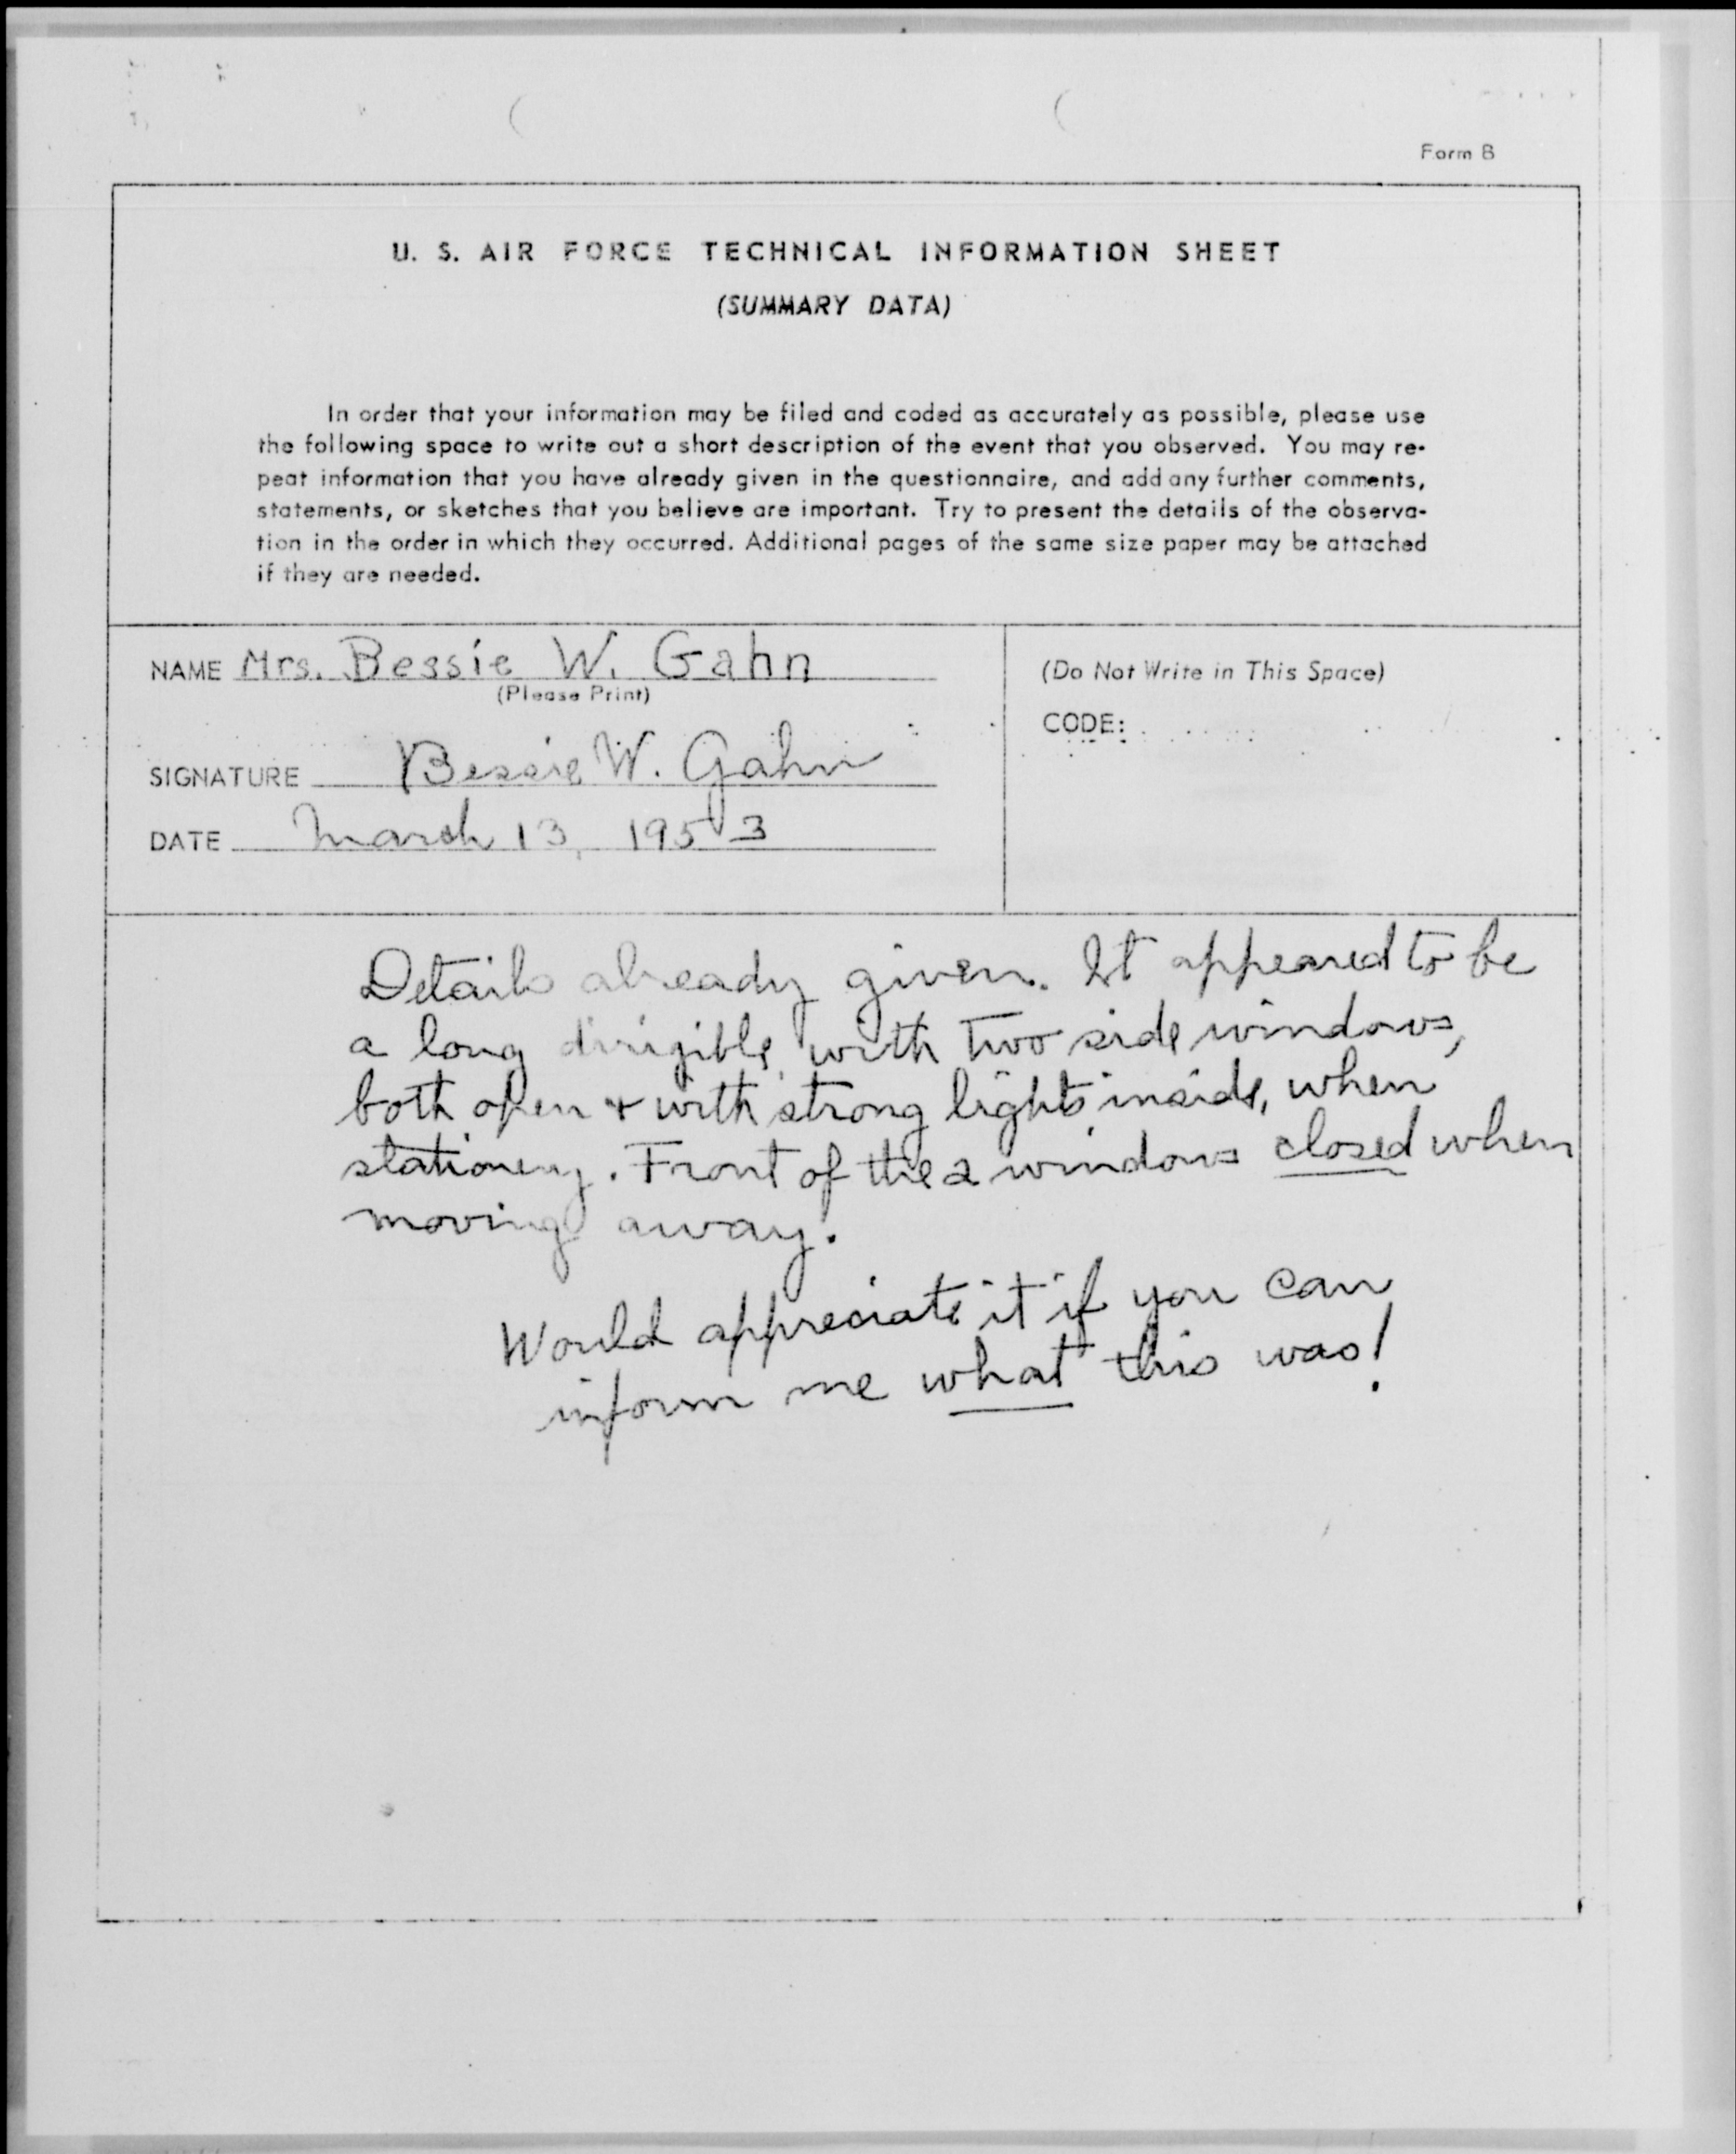 Form B
U. S. AIR FORCE TECHNICAL INFORMATION SHEET
(SUMMARY DATA)
In order that your information may be filed and coded as accurately as possible, please use
the following space to write out a short description of the event that you observed. You may re-
peat information that you have already given in the questionnaire, and add any further comments,
statements, or sketches that you believe are important. Try to present the details of the observa-
tion in the order in which they occurred. Additional pages of the same size paper may be attached
if they are needed.
NAME Mrs. Bessie W. Gahn
(Please Print)
SIGNATURE Bessie W. Gahn
DATE March 13, 1953
(Do Not Write in This Space)
CODE:
Details already given. It appeared to be
a long dirigible, with two side windows,
both open & with strong lights inside, when
stationery. Front of the 2 windows closed when
moving away.
Would appreciate it if you can
inform me what this was!